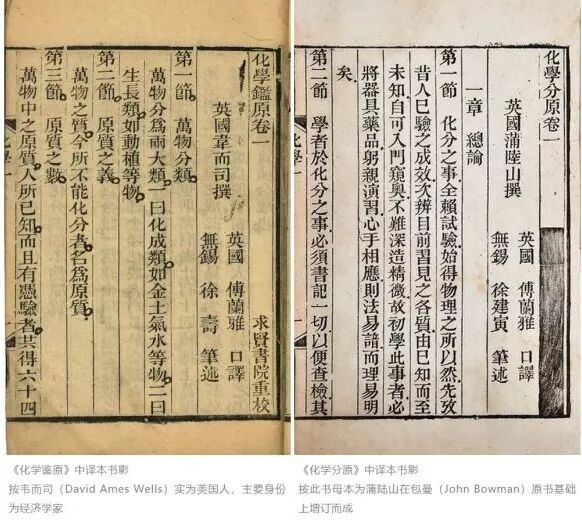 化學鑑原卷一
求賢書院重校
英國韋而司撰
英國 傅蘭雅 口譯
無錫 徐壽 筆述
第一節 萬物分類。
萬物分爲兩大類。一曰化成類如金土氣水等物。二曰
生長類。如動植等物。
第二節 原質之義
萬物之質。今所不能化分者。名爲原質。
第三節 原質之數。
萬物中之原質。人所已知。而且有憑驗者。共得六十四
化學分原卷一
英國蒲陸山撰
英國 傅蘭雅 口譯
無錫 徐建寅 筆述
一章 總論
第一節 化分之事全賴試驗始得物理之所以然先攷
昔人已驗之成效次辨目前習見之各質由已知而至
未知自可入門窺奧不難深造精微故初學此事者必
將器具藥品躬親演習心手相應則法易諳而理易明
矣
第二節 學者於化分之事必須書記一切以便查檢其
《化学鉴原》中译本书影
按韦而司（David Ames Wells）实为美国人，主要身份
为经济学家
《化学分原》中译本书影
按此书母本为蒲陆山在包曼（John Bowman）原书基础
上增订而成